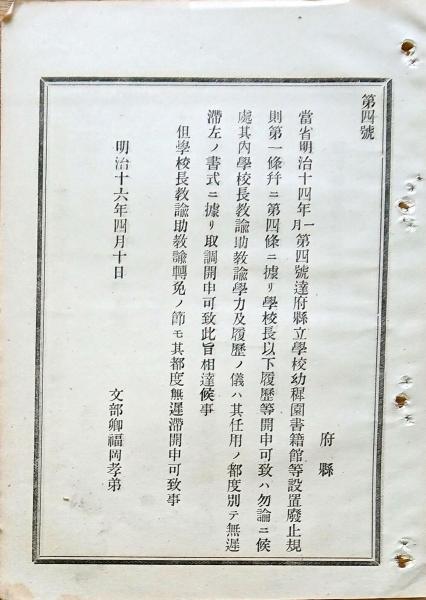 第四號
府縣
當省明治十四年一月第四號達府縣立學校幼稚園書籍館等設置廢止規
則第一條幷ニ第四條ニ據リ學校長以下履歷等開申可致ハ勿論ニ候
處其內學校長敎諭助敎諭學力及履歷ノ儀ハ其任用ノ都度別テ無遲
滯左ノ書式ニ據リ取調開申可致此旨相達候事
但學校長敎諭助敎諭轉免ノ節モ其都度無遲滯開申可致事
明治十六年四月十日
文部卿福岡孝弟